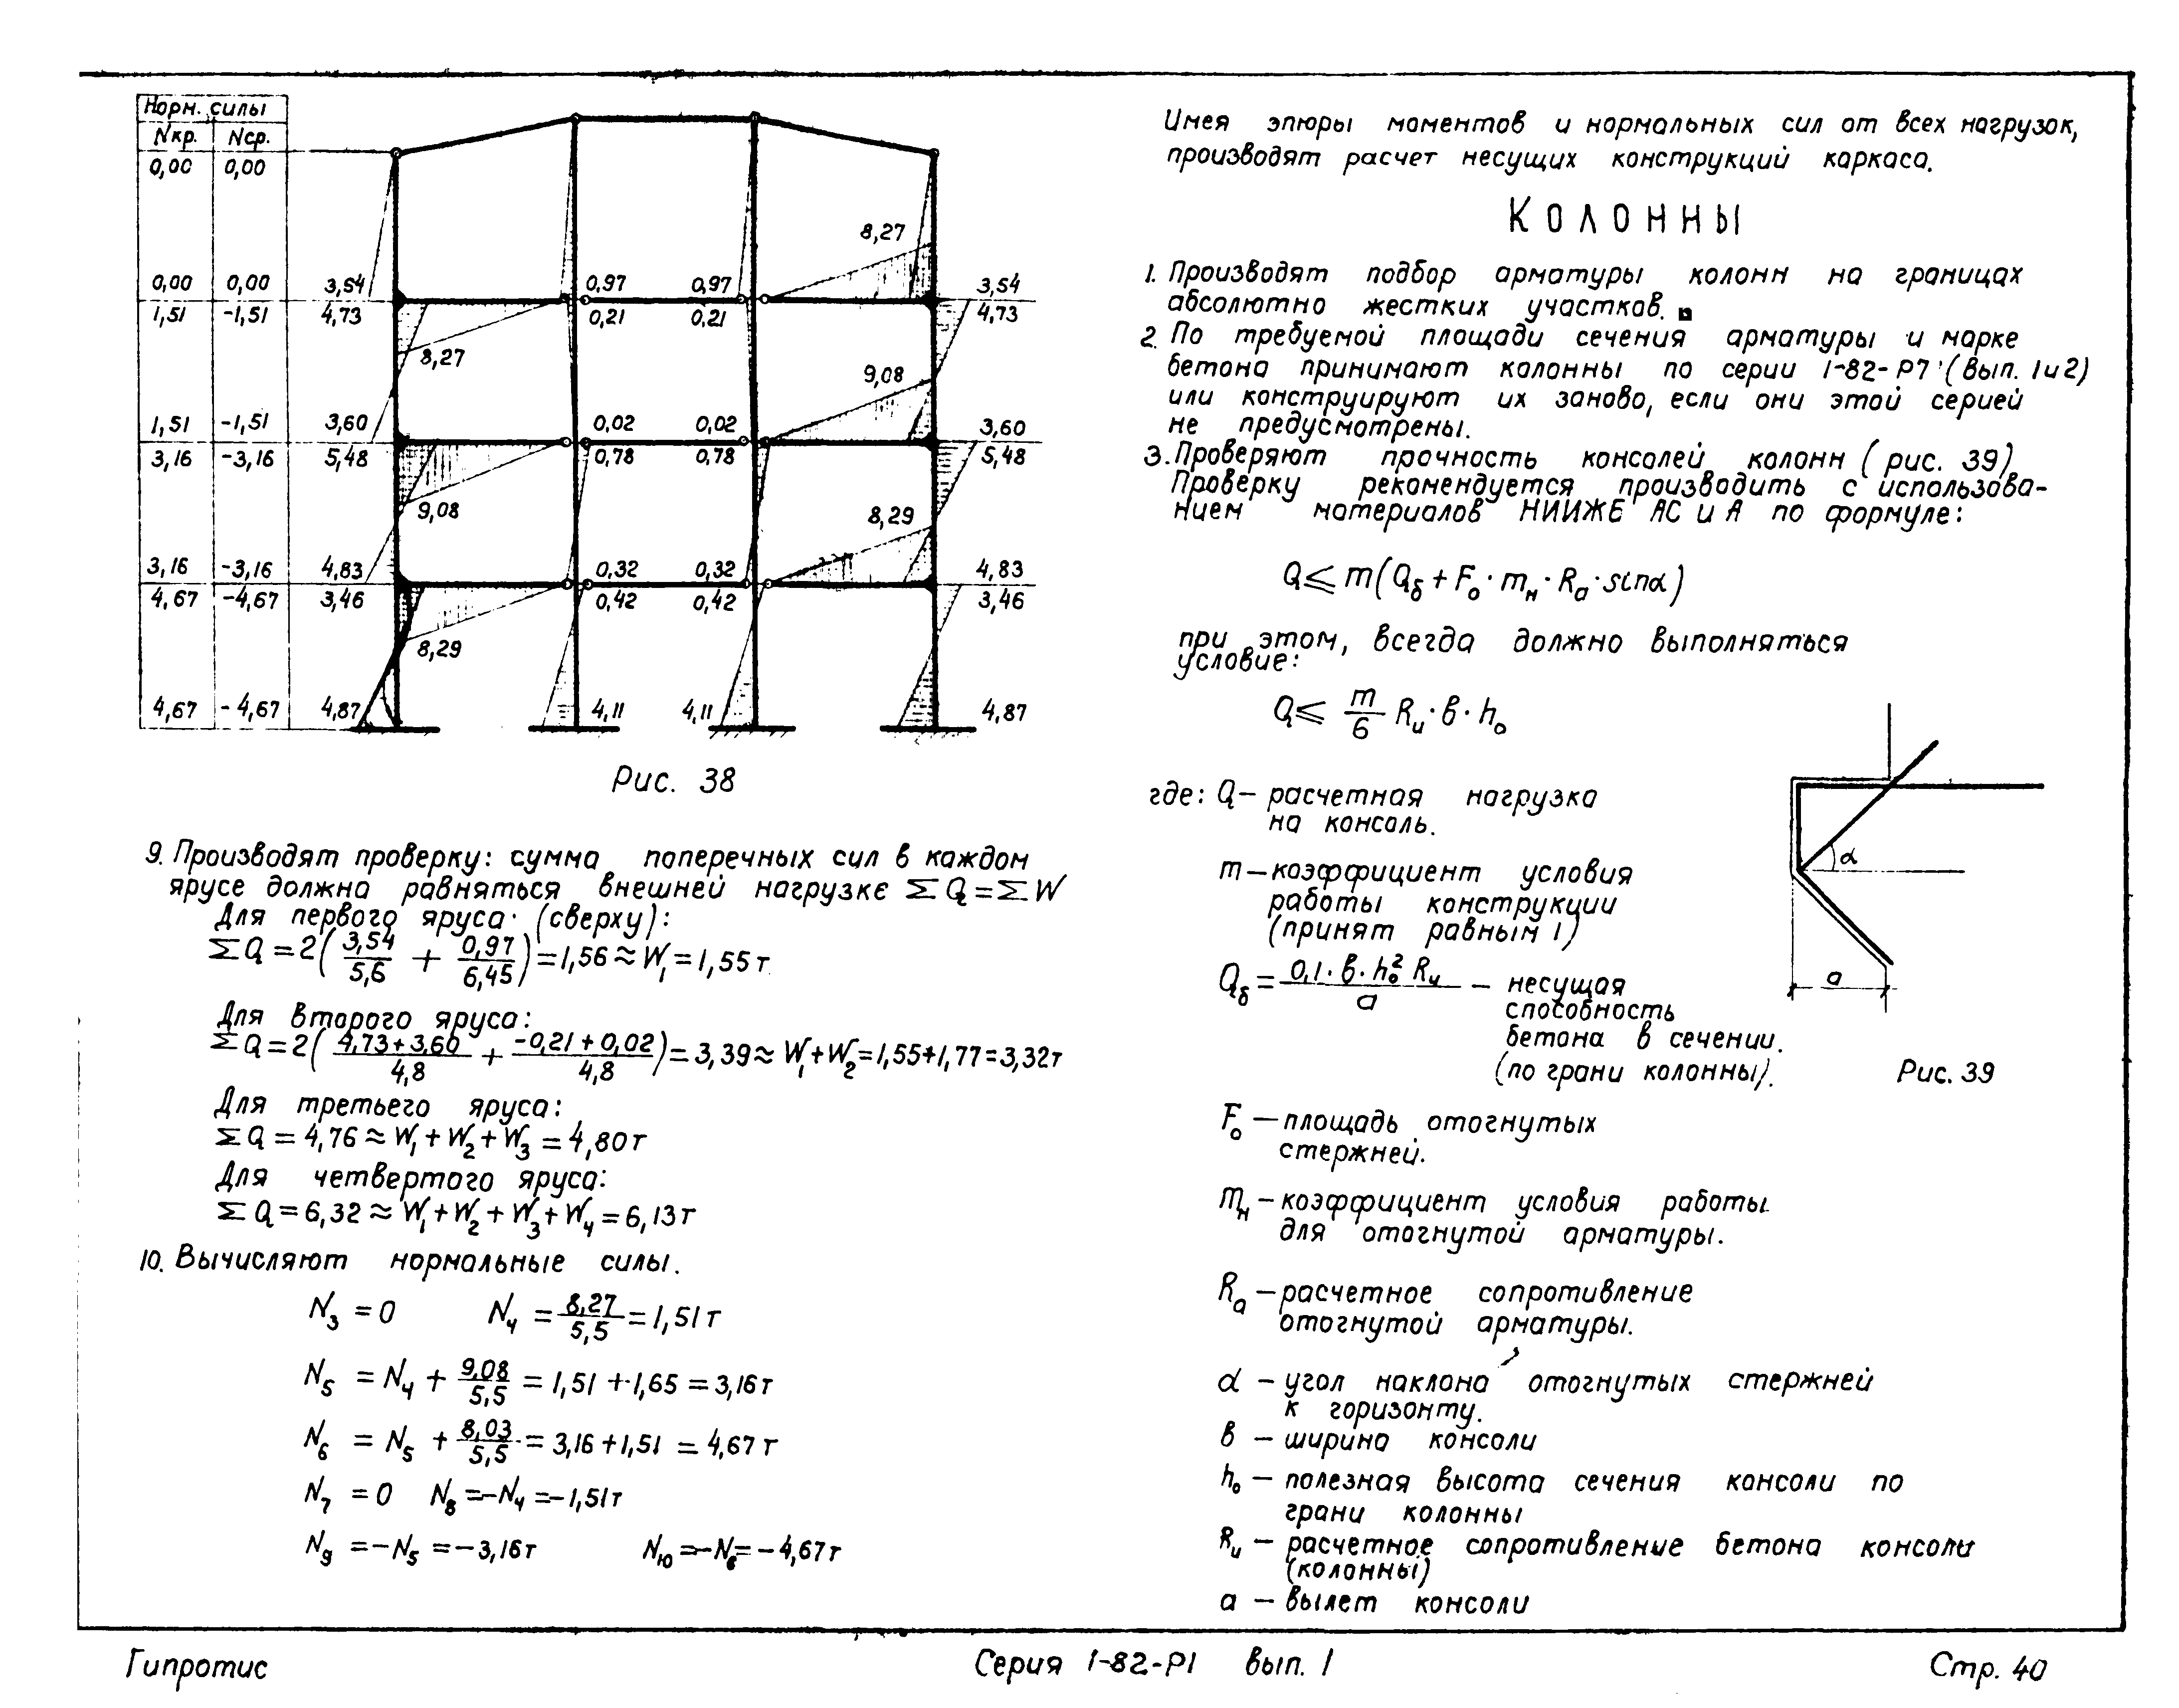 Норм. силы
Nкр. Nср.
0,00 0,00
8,27
0,00 0,00 3,54 0,97 0,97 3,54
1,51 -1,51 4,73 0,21 0,21 4,73
8,27
9,08
1,51 -1,51 3,60 0,02 0,02 3,60
3,16 -3,16 5,48 0,78 0,78 5,48
9,08
8,29
3,16 -3,16 4,83 0,32 0,32 4,83
4,67 -4,67 3,46 0,42 0,42 3,46
8,29
4,67 -4,67 4,87 4,11 4,11 4,87
Рис. 38
9. Производят проверку: сумма поперечных сил в каждом
ярусе должна равняться внешней нагрузке ΣQ=ΣW
Для первого яруса (сверху):
ΣQ=2(3,54/5,6 + 0,97/6,45)=1,56≈W₁=1,55т
Для второго яруса:
ΣQ=2(4,73+3,60/4,8 + -0,21+0,02/4,8)=3,39≈W₁+W₂=1,55+1,77=3,32т
Для третьего яруса:
ΣQ=4,76≈W₁+W₂+W₃=4,80т
Для четвертого яруса:
ΣQ=6,32≈W₁+W₂+W₃+W₄=6,13т
10. Вычисляют нормальные силы.
N₃=0 N₄=8,27/5,5=1,51т
N₅=N₄+9,08/5,5=1,51+1,65=3,16т
N₆=N₅+8,03/5,5=3,16+1,51=4,67т
N₇=0 N₈=-N₄=-1,51т
N₉=-N₅=-3,16т N₁₀=-N₆=-4,67т
Имея эпюры моментов и нормальных сил от всех нагрузок,
производят расчет несущих конструкций каркаса.
КОЛОННЫ
1. Производят подбор арматуры колонн на границах
абсолютно жестких участков.
2. По требуемой площади сечения арматуры и марке
бетона принимают колонны по серии 1-82-Р7 (Вып. 1и2)
или конструируют их заново, если они этой серией
не предусмотрены.
3. Проверяют прочность консолей колонн (рис. 39)
Проверку рекомендуется производить с использова-
нием материалов НИИЖБ АС и А по формуле:
Q⩽m(Qб+Fо·mн·Rа·sinα)
при этом, всегда должно выполняться
условие:
Q⩽ m/6 Rи·в·hо
где: Q— расчетная нагрузка
на консоль.
m—коэффициент условия
работы конструкции
(принят равным 1)
Qб=0,1·в·hо² Rи/а — несущая
способность
бетона в сечении.
(по грани колонны).
α
а
Рис. 39
Fо —площадь отогнутых
стержней.
mн —коэффициент условия работы
для отогнутой арматуры.
Rа —расчетное сопротивление
отогнутой арматуры.
α — угол наклона отогнутых стержней
к горизонту.
в — ширина консоли
hо — полезная высота сечения консоли по
грани колонны
Rи — расчетное сопротивление бетона консоли
(колонны)
а — вылет консоли
Гипротис Серия 1-82-Р1 вып. 1 Стр. 40